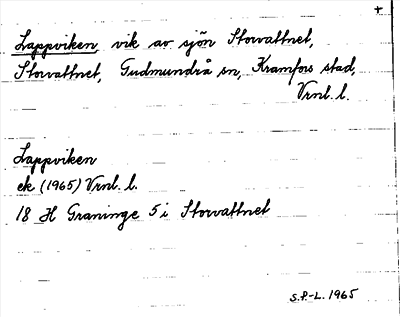 +
Lappviken, vik av sjön Storvattnet,
Storvattnet, Gudmundrå sn, Kramfors stad,
Vrnl. l.
Lappviken
ek (1965) Vrnl. l.
18 H Graninge 5 i Storvattnet
S.P.-L. 1965